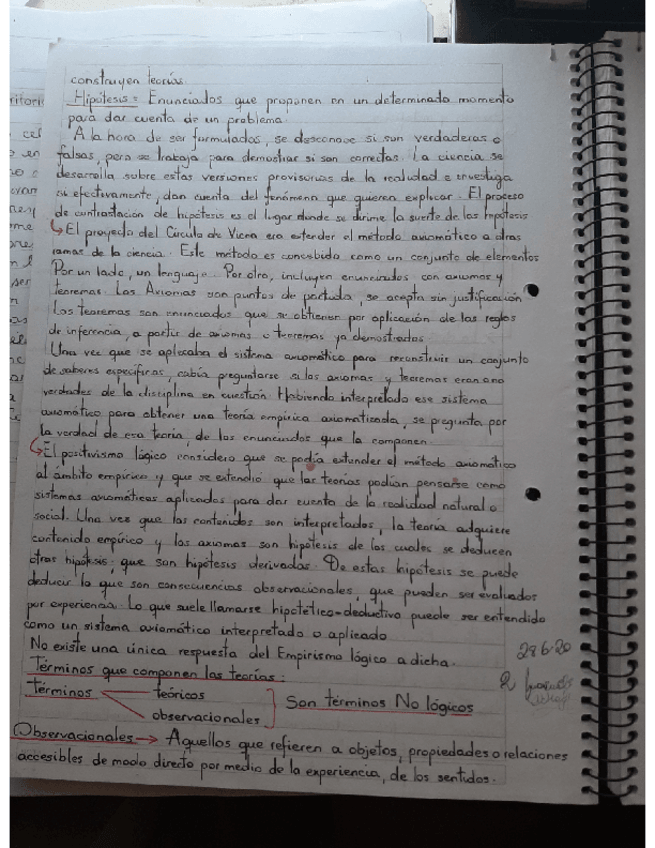 construyen teorías.
Hipótesis = Enunciados que proponen en un determinado momento
para dar cuenta de un problema.
A la hora de ser formulados, se desconoce si son verdaderas o
falsas, pero se trabaja para demostrar si son correctas. La ciencia se
desarrolla sobre estas versiones provisorias de la realidad e investiga
si efectivamente, dan cuenta del fenómeno que quieren explicar. El proceso
de contrastación de hipótesis es el lugar donde se dirime la suerte de las hipótesis
El proyecto del Círculo de Viena era extender el método axiomático a otras
ramas de la ciencia. Este método es concebido como un conjunto de elementos
Por un lado, un lenguaje. Por otro, incluyen enunciados con axiomas y
teoremas. Los Axiomas son puntos de partida, se acepta sin justificación
Los teoremas son enunciados que se obtienen por aplicación de las reglas
de inferencia, a partir de axiomas o teoremas ya demostrados
Una vez que se aplicaba el sistema axiomático para reconstruir un conjunto
de saberes específicos, cabía preguntarse si los axiomas y teoremas eran o no
verdades de la disciplina en cuestión. Habiendo interpretado ese sistema
axiomático para obtener una teoría empírica axiomatizada, se pregunta por
la verdad de esa teoría, de los enunciados que la componen
El positivismo lógico consideró que se podía extender el método axiomático
al ámbito empírico y que se extendió que las teorías podían pensarse como
sistemas axiomáticos aplicados para dar cuenta de la realidad natural o
social. Una vez que los contenidos son interpretados, la teoría adquiere
contenido empírico y los axiomas son hipótesis de los cuales se deducen
otras hipótesis, que son hipótesis derivadas. De estas hipótesis se puede
deducir lo que son consecuencias observacionales, que pueden ser evaluados
por experiencia. Lo que suele llamarse hipotético-deductivo puede ser entendido
como un sistema axiomático interpretado o aplicado
No existe una única respuesta del Empirismo lógico a dicha.
Términos que componen las teorías:
Términos teóricos
observacionales
Son términos No lógicos
Observacionales → Aquellos que refieren a objetos, propiedades o relaciones
accesibles de modo directo por medio de la experiencia, de los sentidos.
28 6-20